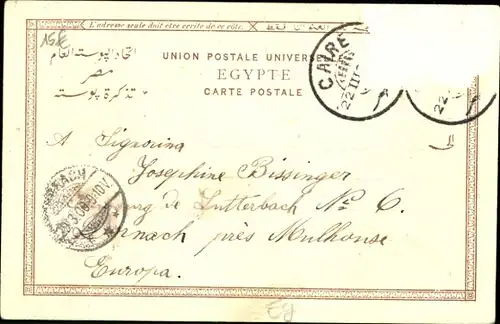 L'adresse seule doit être écrite de ce côté.
15 E
اتحاد البوستة العام
مصر
تذكرة بوستة
UNION POSTALE UNIVERSELLE
EGYPTE
CARTE POSTALE
CAIRE
22 III
22
A Signorina
Josephine Bissinger
de Lutterbach No 6.
près Mulhouse
Europa.
Eg